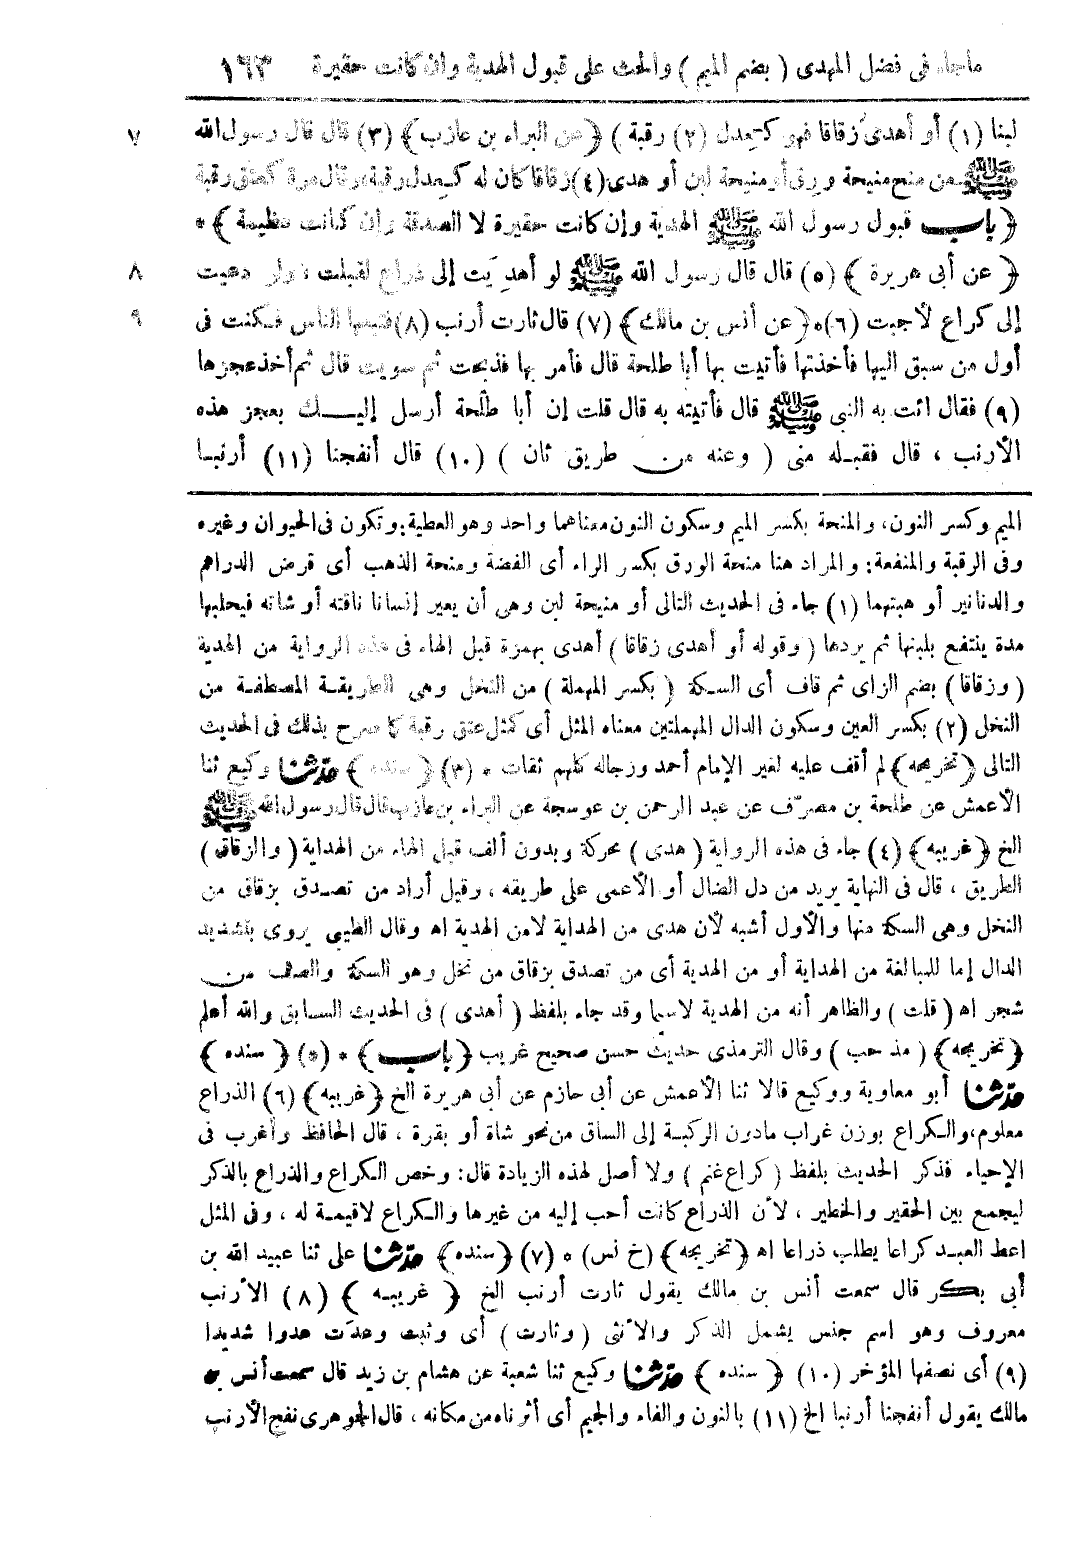 ماجاء فى فضل المهدى ( بضم الميم ) والحث على قبول الهدية وان كانت حقيرة ١٦٣
لبنا (١) أو أهدى زقاقا فهو كعِدل (٢) رقبة ) ﴿ عن البراء بن عازب ﴾ (٣) قال قال رسول الله ٧
ﷺ من منح منيحة ورِق أو منيحة لبن أو هدى (٤) زقاقا كان له كعِدل رقبة، وقال مرة كعتق رقبة
﴿ باب قبول رسول الله ﷺ الهدية وإن كانت حقيرة لا الصدقة وإن كانت عظيمة ﴾ *
﴿ عن أبى هريرة ﴾ (٥) قال قال رسول الله ﷺ لو أهدِيَت إلى ذراع لقبلت، ولو دعيت ٨
إلى كراع لأجبت (٦) * ﴿ عن أنس بن مالك ﴾ (٧) قال ثارت أرنب (٨) فتبعها الناس فكنت فى ٩
أول من سبق اليها فأخذتها فأتيت بها أبا طلحة قال فأمر بها فذبحت ثم سويت قال ثم أخذ عجزها
(٩) فقال ائت به النبى ﷺ قال فأتيته به قال قلت إن أبا طلحة أرسل إليـك بعجز هذه
الأرنب ، قال فقبـله منى ( وعنه من طريق ثان ) (١٠) قال أنفجنا (١١) أرنبـا
الميم وكسر النون، والمنحة بكسر الميم وسكون النون معناهما واحد وهو العطية: وتكون فى الحيوان وغيره
وفى الرقبة والمنفعة: والمراد هنا منحة الورق بكسر الراء أى الفضة ومنحة الذهب أى قرض الدراهم
والدنانير أو هبتهما (١) جاء فى الحديث التالى أو منيحة لبن وهى أن يعير إنسانا ناقته أو شاته فيحلبها
مدة ينتفع بلبنها ثم يردها ( وقوله أو أهدى زقاقا ) أهدى بهمزة قبل الهاء فى هذه الرواية من الهدية
( وزقاقا ) بضم الزاى ثم قاف أى السكة ( بكسر المهملة ) من النخل وهى الطريقـة المصطفـة من
النخل (٢) بكسر العين وسكون الدال المهملتين معناه المثل أى كمثل عتق رقبة كما صرح بذلك فى الحديث
التالى ﴿ تخريجه ﴾ لم أقف عليه لغير الإمام أحمد ورجاله كلهم ثقات * (٣) ﴿ سنده ﴾ حدّثنا وكيع ثنا
الأعمش عن طلحة بن مصرّف عن عبد الرحمن بن عوسجة عن البراء بن عازب قال قال رسول الله ﷺ
الخ ﴿ غريبه ﴾ (٤) جاء فى هذه الرواية ( هدى ) محركة وبدون ألف قبل الهاء من الهداية ( والزقاق )
الطريق ، قال فى النهاية يريد من دل الضال أو الأعمى على طريقه ، وقيل أراد من تصـدق بزقاق من
النخل وهى السكة منها والأول أشبه لأن هدى من الهداية لا من الهدية اه وقال الطيبى يروى بتشديد
الدال إما للمبالغة من الهداية أو من الهدية أى من تصدق بزقاق من نخل وهو السكة والصف من
شجر اه ( قلت ) والظاهر أنه من الهدية لاسيما وقد جاء بلفظ ( أهدى ) فى الحديث السـابق والله أعلم
﴿ تخريجه ﴾ ( مذ حب ) وقال الترمذى حديث حسن صحيح غريب ﴿ باب ﴾ * (٥) ﴿ سنده ﴾
حدّثنا أبو معاوية ووكيع قالا ثنا الأعمش عن أبى حازم عن أبى هريرة الخ ﴿ غريبه ﴾ (٦) الذراع
معلوم، والـكراع بوزن غراب مادون الركبـة إلى الساق من نحو شاة أو بقرة ، قال الحافظ وأغرب فى
الإحياء فذكر الحديث بلفظ ( كراع غنم ) ولا أصل لهذه الزيادة قال: وخص الـكراع والذراع بالذكر
ليجمع بين الحقير والخطير ، لأن الذراع كانت أحب إليه من غيرها والـكراع لاقيمـة له ، وفى المثل
اعط العبـد كراعا يطلب ذراعا اه ﴿ تخريجه ﴾ (خ نس) * (٧) ﴿ سنده ﴾ حدّثنا على ثنا عبيد الله بن
أبى بـكـر قال سمعت أنس بن مالك يقول ثارت أرنب الخ ﴿ غريبـه ﴾ (٨) الأرنب
معروف وهو اسم جنس يشمل الذكر والأنثى ( وثارت ) أى وثبت وعدَت عدوا شديدا
(٩) أى نصفها المؤخر (١٠) ﴿ سنده ﴾ حدّثنا وكيع ثنا شعبة عن هشام بن زيد قال سمعت أنس بن
مالك يقول أنفجنا أرنبا الخ (١١) بالنون والفاء والجيم أى أثرناه من مكانه ، قال الجوهرى نفج الأرنب